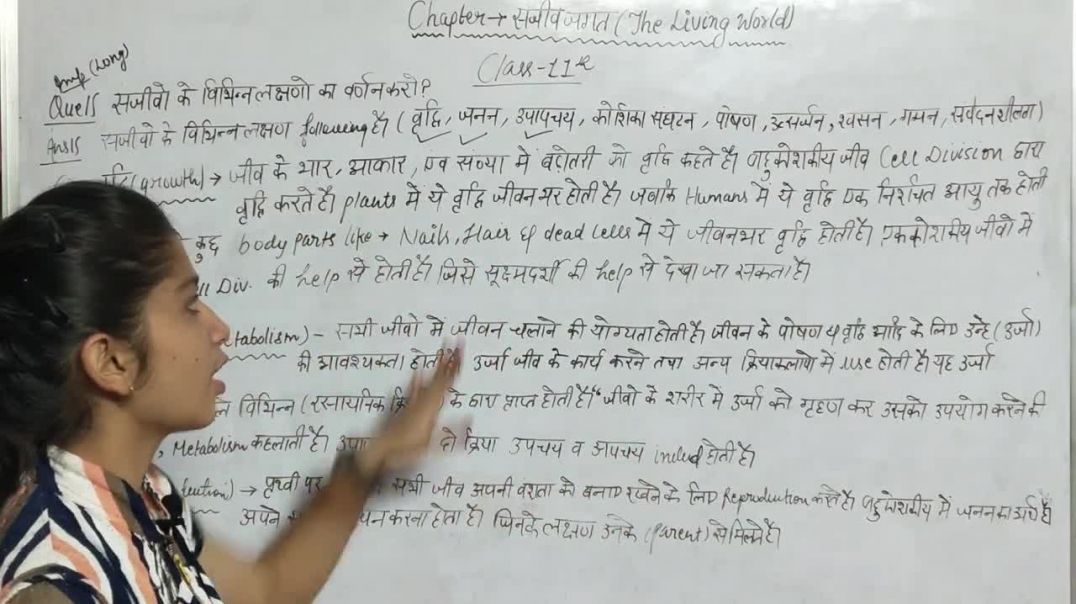 Chapter → सजीव जगत (The Living World)
Class-11th
Imp (Long)
Que15 सजीवो के विभिन्न लक्षणो का वर्णन करो?
Ans15 सजीवो के विभिन्न लक्षण following है (वृद्धि, जनन, उपापचय, कोशिका संघटन, पोषण, उत्सर्जन, श्वसन, गमन, संवेदनशीलता)
(growth) → जीव के भार, आकार, एवं संख्या में बढ़ोतरी को वृद्धि कहते है। बहुकोशकीय जीव Cell Division द्वारा
वृद्धि करते है। plants में ये वृद्धि जीवनभर होती है। जबकि Humans में ये वृद्धि एक निश्चित आयु तक होती
कुछ body parts like → Nails, Hair व dead cells में ये जीवनभर वृद्धि होती है। एककोशकीय जीवो में
Div. की help से होती है। जिसे सूक्ष्मदर्शी की help से देखा जा सकता है।
tabolism) - सभी जीवो में जीवन चलाने की योग्यता होती है। जीवन के पोषण व वृद्धि आदि के लिए उन्हे (उर्जा)
की आवश्यकता होती है उर्जा जीव के कार्य करने तथा अन्य क्रियाकलापो में use होती है। यह उर्जा
विभिन्न (रसायनिक के द्वारा प्राप्त होती है। "जीवो के शरीर में उर्जा को गृहण कर उसको उपयोग करने की
, Metabolism कहलाती है। दो क्रिया उपचय व अपचय includ होती है।
→ पृथ्वी पर सभी जीव अपनी वंशता को बनाए रखने के लिए Reproduction करते है। बहुकोशकीय में जनन का अर्थ है
अपने करना होता है। जिनके लक्षण उनके (parent) से मिलते है।